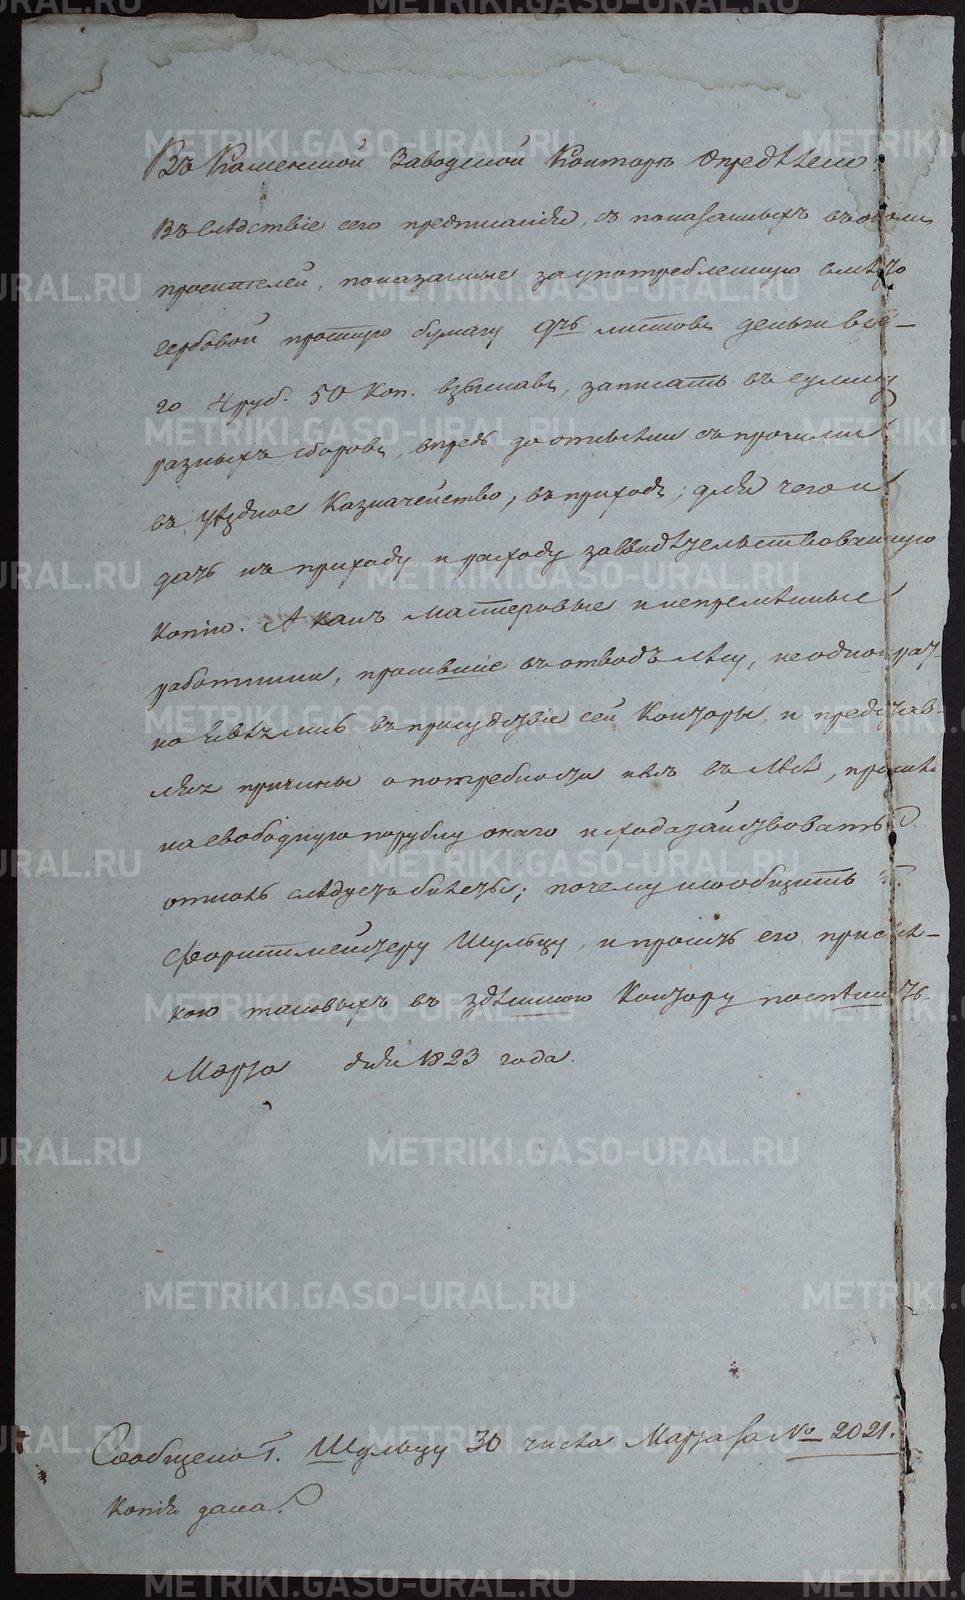 Въ Каменской Заводской Конторѣ Опредѣлено
Въ слѣдствіе сего предписанія, съ показанныхъ въ ономъ
просителей, показанные за употребленную вмѣсто
гербовой простую бумагу листовъ деньги все-
го 4 руб. 50 коп. взыскавъ, записать въ сумму
разныхъ сборовъ, впредь до отсылки съ прочими
въ Уѣздное Казначейство, въ приходъ; для чего и
дать къ приходу и расходу засвидѣтельствованную
копію. А какъ мастеровые и непремѣнные
работники, просившіе въ отводъ лѣсу, неоднократ-
но являлись въ присудствіе сей Конторы, и представ-
ляя причины о потребности ихъ въ лѣсѣ, просили
на свободную порубку онаго исходатайствовать
отколь слѣдуетъ билеты; почему и сообщить Г.
Форштмейстеру Шульцу, и просить его присыл-
кою таковыхъ въ здѣшнюю Контору поспѣшить.
Марта дня 1823 года.
Сообщено Г. Шульцу 30 числа Марта за № 2021.
Копія дана.
METRIKI.GASO-URAL.RU